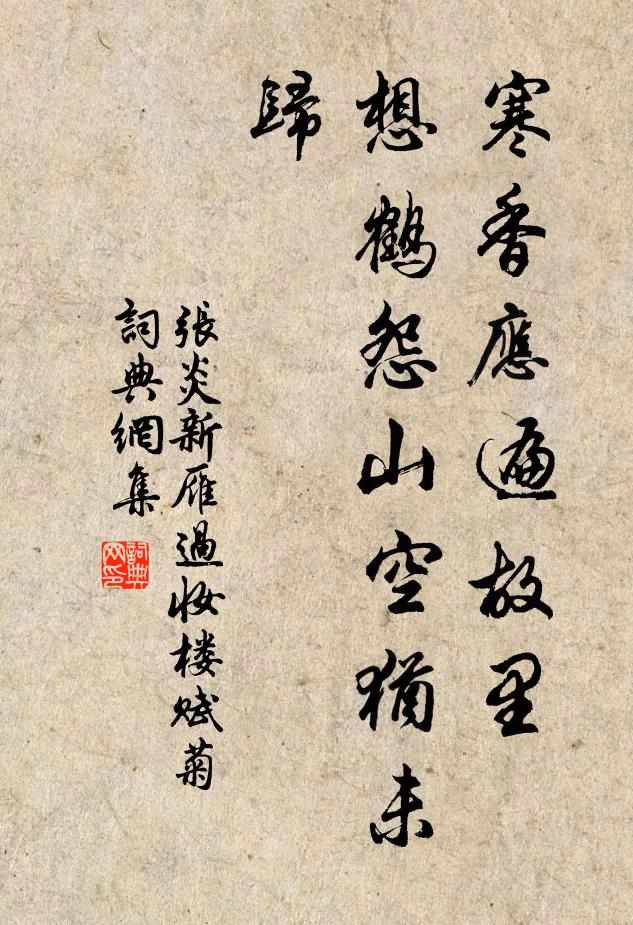 寒香應遍故里
想鶴怨山空猶未
歸
張炎新雁過妝樓賦菊
詞典網集
詞典
网印